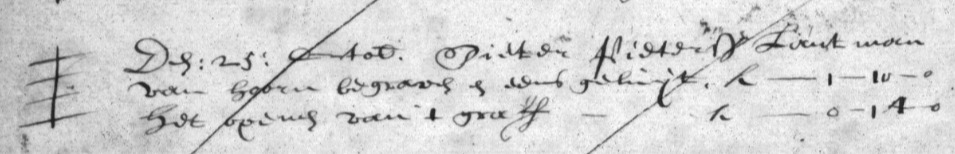 Den: 25: Octob. Pieter Pietersz Lantman
van hoorn begraven en eens geluijt. k — 1 — 10 — 0
Het openen van 't graff — k — 0 — 14 — 0